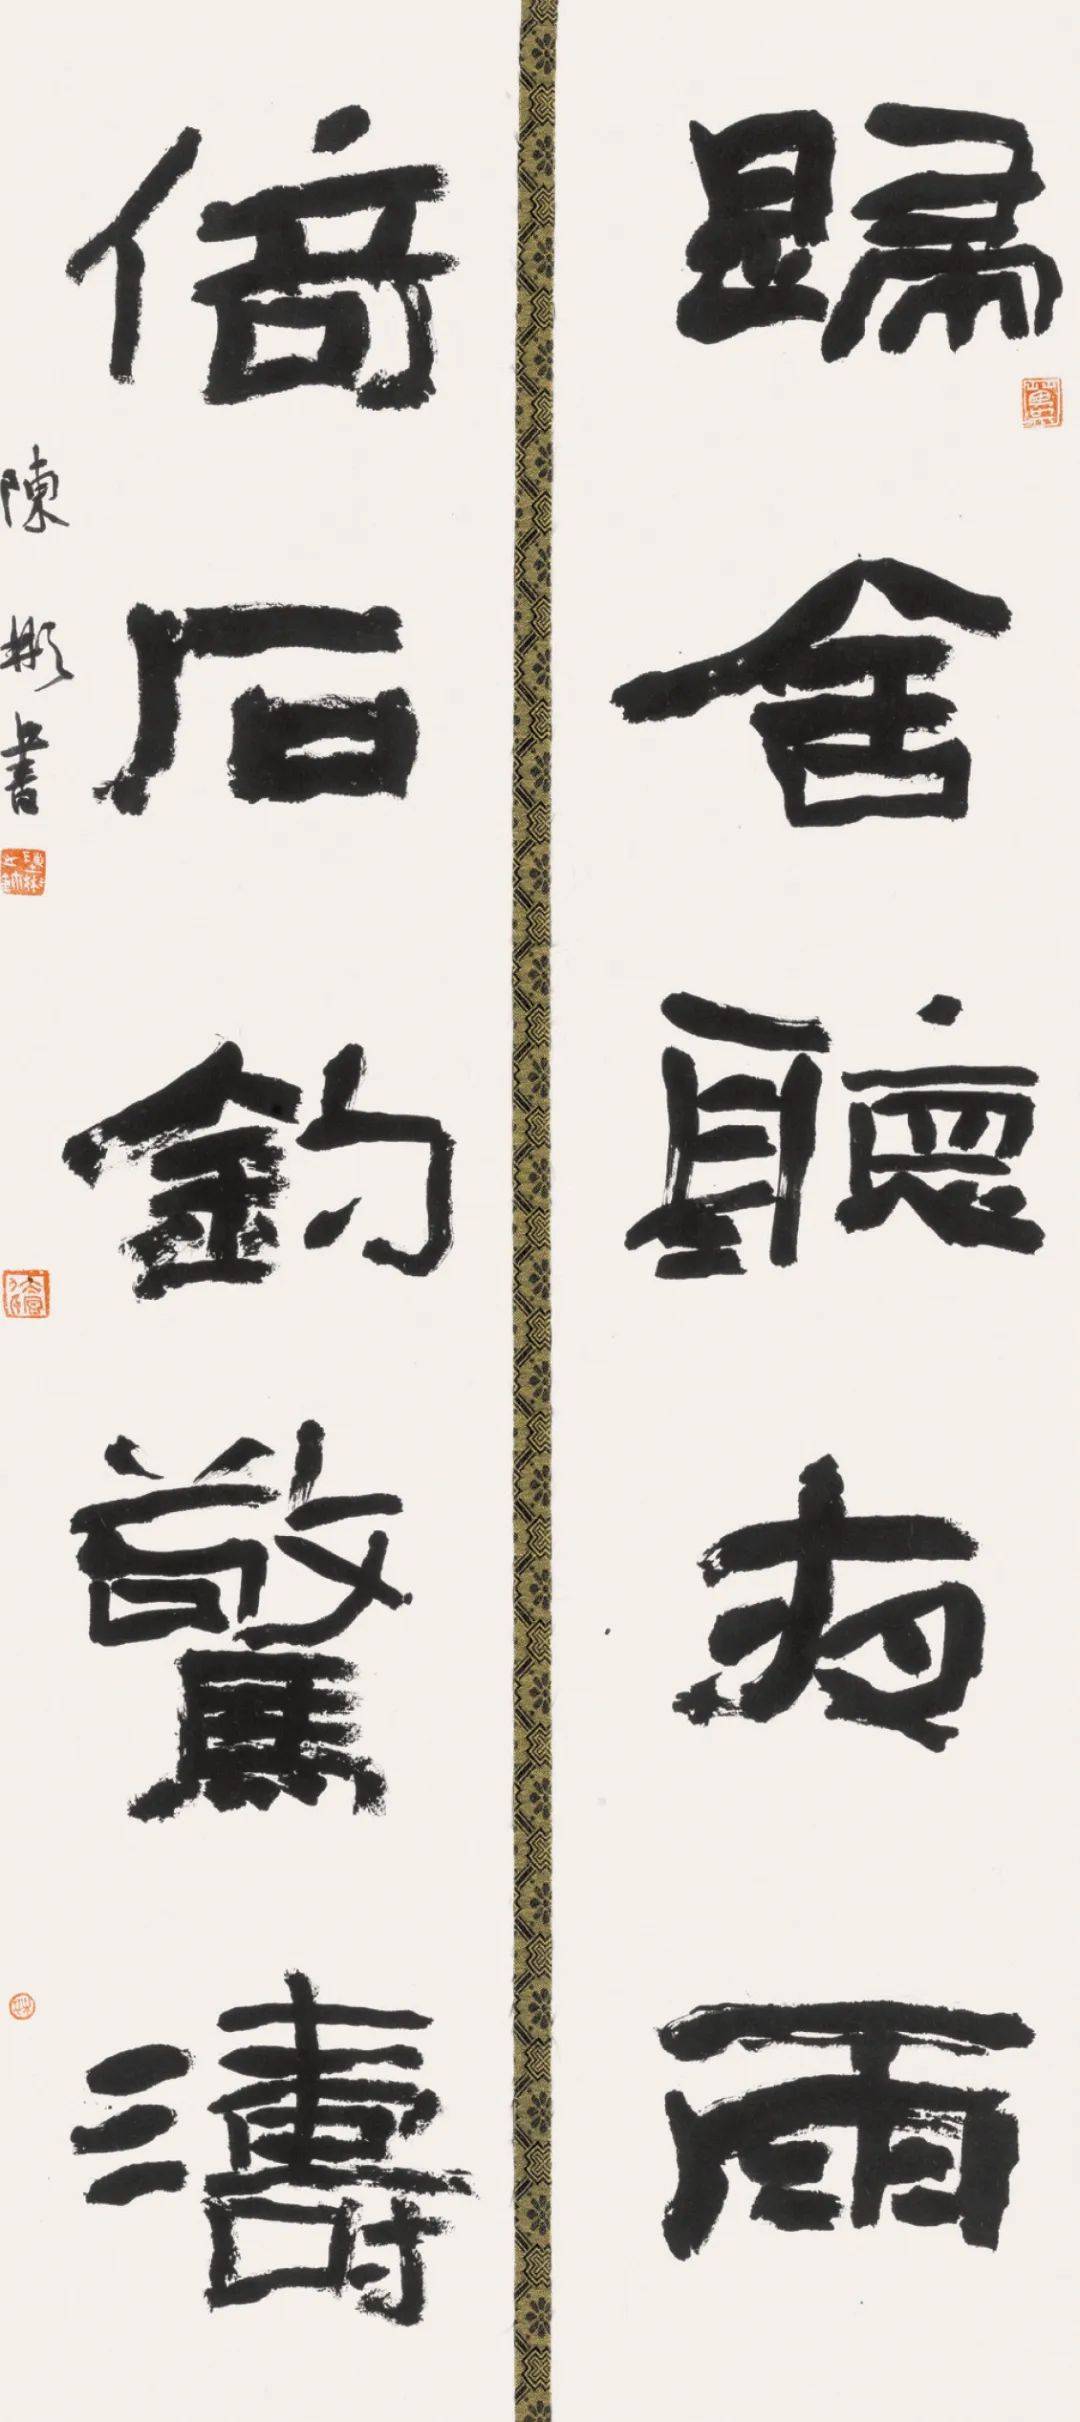 歸舍聽夜雨
倚石釣驚濤
陳彬書